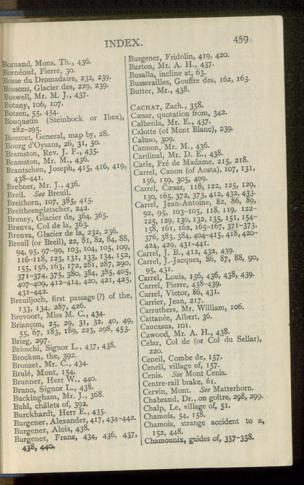 INDEX. 459
Bornand, Mons. Th., 436.
Bornéoud, Pierre, 30.
Bosse du Dromadaire, 232, 239.
Bossons, Glacier des, 229, 239.
Boswell, Mr. M. J., 437.
Botany, 106, 107.
Botzen, 55, 454.
Bouquetin (Steinbock or Ibex),
282-295.
Bourcet, General, map by, 28.
Bourg d'Oysans, 26, 31, 50.
Bramston, Rev. J. F., 435.
Bramston, Mr. M., 436.
Brantschen, Joseph, 415, 416, 419,
438-441.
Brebner, Mr. J., 436.
Breil. See Breuil.
Breithorn, 107, 385, 415.
Breithorngletscher, 442.
Breney, Glacier de, 364, 365.
Brenva, Col de la, 363.
Brenva, Glacier de la, 232, 236.
Breuil (or Breil), 22, 81, 82, 84, 88,
94, 95, 97-99, 103, 104, 105, 109,
116-118, 123, 131, 133, 134, 152,
155, 156, 163, 172, 281, 287, 290,
371-374, 375, 380, 384, 385, 405,
407-409, 412-414, 420, 421, 425,
431-442.
Breuiljoch, first passage (?) of the,
133, 134, 287, 426.
Brevoort, Miss M. C., 434.
Briançon, 25, 29, 31, 39, 40, 49,
55, 67, 183, 189, 223, 298, 453.
Brieg, 297.
Brioschi, Signor L., 437, 438.
Brocken, the, 392.
Bronzet, Mr. C., 434.
Brulé, Mont, 154.
Brunner, Herr W., 440.
Bruno, Signor L., 438.
Buckingham, Mr. J., 368.
Buhl, châlets of, 392.
Burckhardt, Herr E., 435.
Burgener, Alexander, 417, 434-442.
Burgener, Alois, 438.
Burgener, Franz, 434, 436, 437,
438, 440.
Burgener, Fridolin, 419, 420.
Burton, Mr. A. H., 437.
Busalla, incline at, 63.
Busserailles, Gouffre des, 162, 163.
Butter, Mr., 438.
CACHAT, Zach., 358.
Cæsar, quotation from, 342.
Calbenia, Mr. E., 437.
Calotte (of Mont Blanc), 239.
Caluso, 309.
Cannon, Mr. M., 436.
Cardinal, Mr. D. E., 438.
Carle, Pré de Madame, 215, 218.
Carrel, Canon (of Aosta), 107, 131,
156, 159, 305, 409.
Carrel, Cæsar, 118, 122, 125, 129,
130, 165, 372, 373, 412, 432, 433.
Carrel, Jean-Antoine, 82, 86, 89,
92, 95, 103-105, 118, 119, 122-
125, 129, 130, 132, 135, 151, 154-
158, 161, 162, 165-167, 371-373,
376, 383, 384, 404-415, 418, 420-
424, 429, 431-441.
Carrel, J. B., 412, 432, 439.
Carrel, J.-Jacques, 86, 87, 88, 90,
95, 431.
Carrel, Louis, 436, 438, 439.
Carrel, Pierre, 438-439.
Carrel, Victor, 86, 431.
Carrier, Jean, 217.
Carruthers, Mr. William, 106.
Cattanée, Albert, 36.
Caucasus, 101.
Cawood, Mr. A. H., 438.
Celar, Col de (or Col du Sellar),
220.
Ceneil, Combe de, 157.
Ceneil, village of, 157.
Cenis. See Mont Cenis.
Centre-rail brake, 61.
Cervin, Mont. See Matterhorn.
Chabrand, Dr., on goître, 298, 299.
Chalp, Le, village of, 51.
Chamois, 54, 158.
Chamois, strange accident to a,
152, 448.
Chamounix, guides of, 357-358.